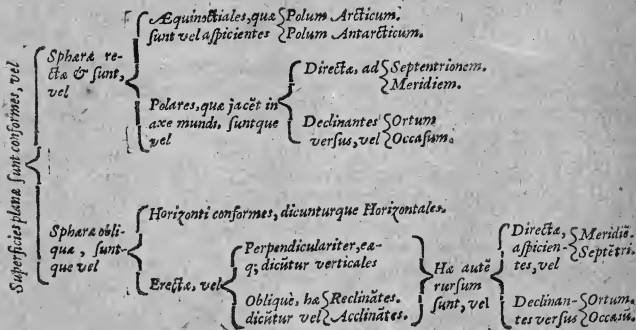 Superficies planæ sunt conformes, vel
Sphæræ re-
ctæ & sunt,
vel
Æquinoctiales, quæ
sunt vel aspicientes
Polum Arcticum.
Polum Antarcticum.
Polares, quæ jacēt in
axe mundi, suntque
vel
Directæ, ad
Septentrionem.
Meridiem.
Declinantes
versus, vel
Ortum
Occasum.
Sphæræ obli-
quæ, sunt-
que vel
Horizonti conformes, dicunturque Horizontales.
Erectæ, vel
Perpendiculariter, eæ-
q; dicūtur verticales
Obliquè, hæ
dicūtur vel
Reclinātes.
Acclinātes.
Hæ autē
rursum
sunt, vel
Directæ,
aspicien-
tes, vel
Meridiē.
Septētri.
Declinan-
tes versus
Ortum.
Occasū.